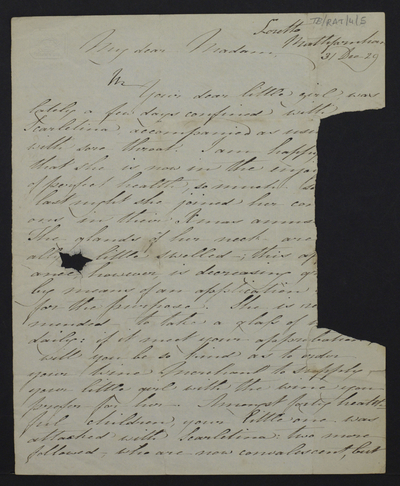 TD/PAT/4/5
Loretto
Rathfarnham
31 Dec 29
My dear Madam
Your dear little girl was
lately a few days confined with
Scarletina accompanied as usu
with sore throat. I am happy
that she is now in the enjoy
of perfect health, so much
last night she joined her co
ons in their Xmas amus
The glands of her neck are
a little swelled, this ap
ance however is decreasing
by means of an application
for the purpose. She is re
mended to take a glass of
daily; if it meet your approbation,
will you be so good as to order
your Wine Merchant to supply
your little girl with the wine you
prefer for her. Amongst forty health
ful children, your little one was
attacked with Scarletina two more
followed, who are now convalescent, but